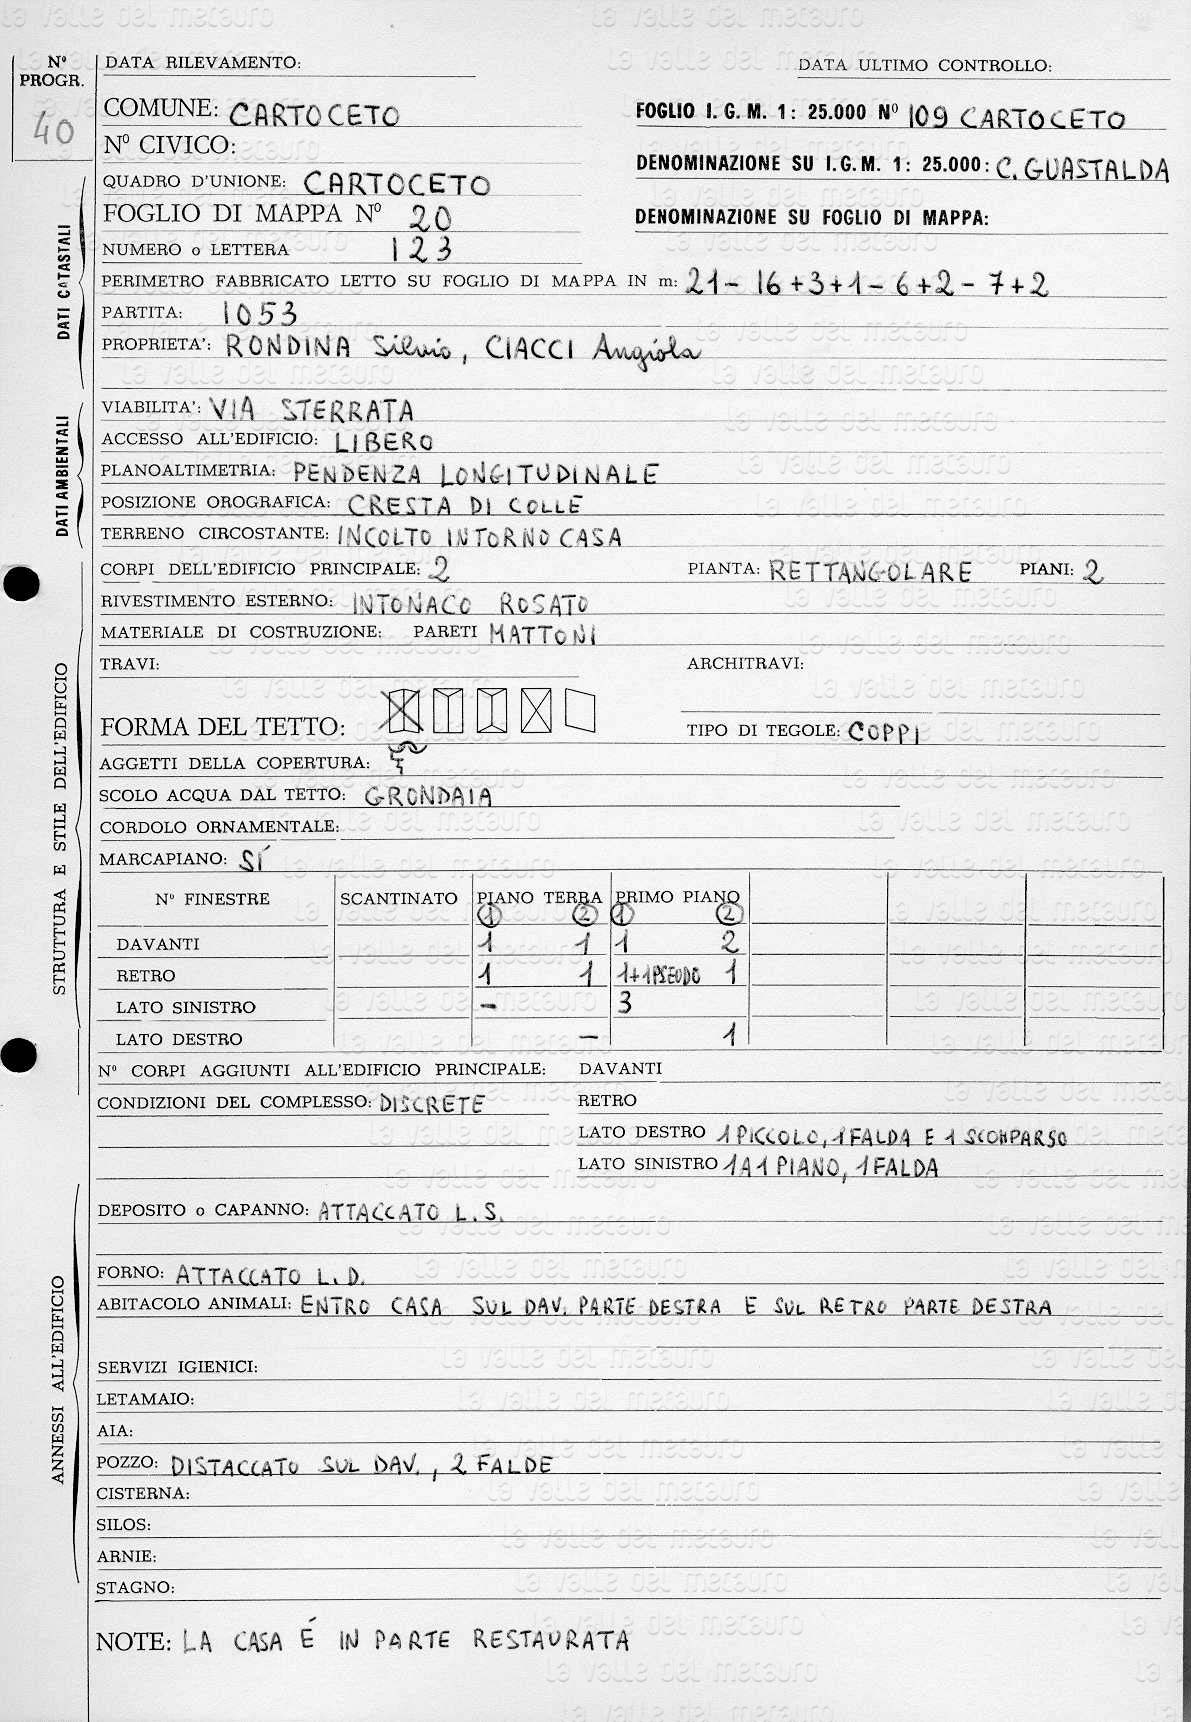 Nº PROGR.
40
DATA RILEVAMENTO:
DATA ULTIMO CONTROLLO:
COMUNE: CARTOCETO
FOGLIO I. G. M. 1: 25.000 Nº 109 CARTOCETO
Nº CIVICO:
DENOMINAZIONE SU I.G.M. 1: 25.000: C. GUASTALDA
QUADRO D'UNIONE: CARTOCETO
FOGLIO DI MAPPA Nº 20
DENOMINAZIONE SU FOGLIO DI MAPPA:
DATI CATASTALI
NUMERO o LETTERA 123
PERIMETRO FABBRICATO LETTO SU FOGLIO DI MAPPA IN m: 21 - 16 + 3 + 1 - 6 + 2 - 7 + 2
PARTITA: 1053
PROPRIETA': RONDINA Silvio, CIACCI Angiola
DATI AMBIENTALI
VIABILITA': VIA STERRATA
ACCESSO ALL'EDIFICIO: LIBERO
PLANOALTIMETRIA: PENDENZA LONGITUDINALE
POSIZIONE OROGRAFICA: CRESTA DI COLLE
TERRENO CIRCOSTANTE: INCOLTO INTORNO CASA
STRUTTURA E STILE DELL'EDIFICIO
CORPI DELL'EDIFICIO PRINCIPALE: 2 PIANTA: RETTANGOLARE PIANI: 2
RIVESTIMENTO ESTERNO: INTONACO ROSATO
MATERIALE DI COSTRUZIONE: PARETI MATTONI
TRAVI: ARCHITRAVI:
FORMA DEL TETTO: TIPO DI TEGOLE: COPPI
AGGETTI DELLA COPERTURA:
SCOLO ACQUA DAL TETTO: GRONDAIA
CORDOLO ORNAMENTALE:
MARCAPIANO: SÍ
Nº FINESTRE SCANTINATO PIANO TERRA PRIMO PIANO
1 2 1 2
DAVANTI 1 1 1 2
RETRO 1 1 1+1PSEUDO 1
LATO SINISTRO - 3
LATO DESTRO - 1
Nº CORPI AGGIUNTI ALL'EDIFICIO PRINCIPALE: DAVANTI
CONDIZIONI DEL COMPLESSO: DISCRETE RETRO
LATO DESTRO 1 PICCOLO, 1 FALDA E 1 SCOMPARSO
LATO SINISTRO 1 A 1 PIANO, 1 FALDA
ANNESSI ALL'EDIFICIO
DEPOSITO o CAPANNO: ATTACCATO L. S.
FORNO: ATTACCATO L. D.
ABITACOLO ANIMALI: ENTRO CASA SUL DAV. PARTE DESTRA E SUL RETRO PARTE DESTRA
SERVIZI IGIENICI:
LETAMAIO:
AIA:
POZZO: DISTACCATO SUL DAV., 2 FALDE
CISTERNA:
SILOS:
ARNIE:
STAGNO:
NOTE: LA CASA É IN PARTE RESTAURATA
la valle del metauro